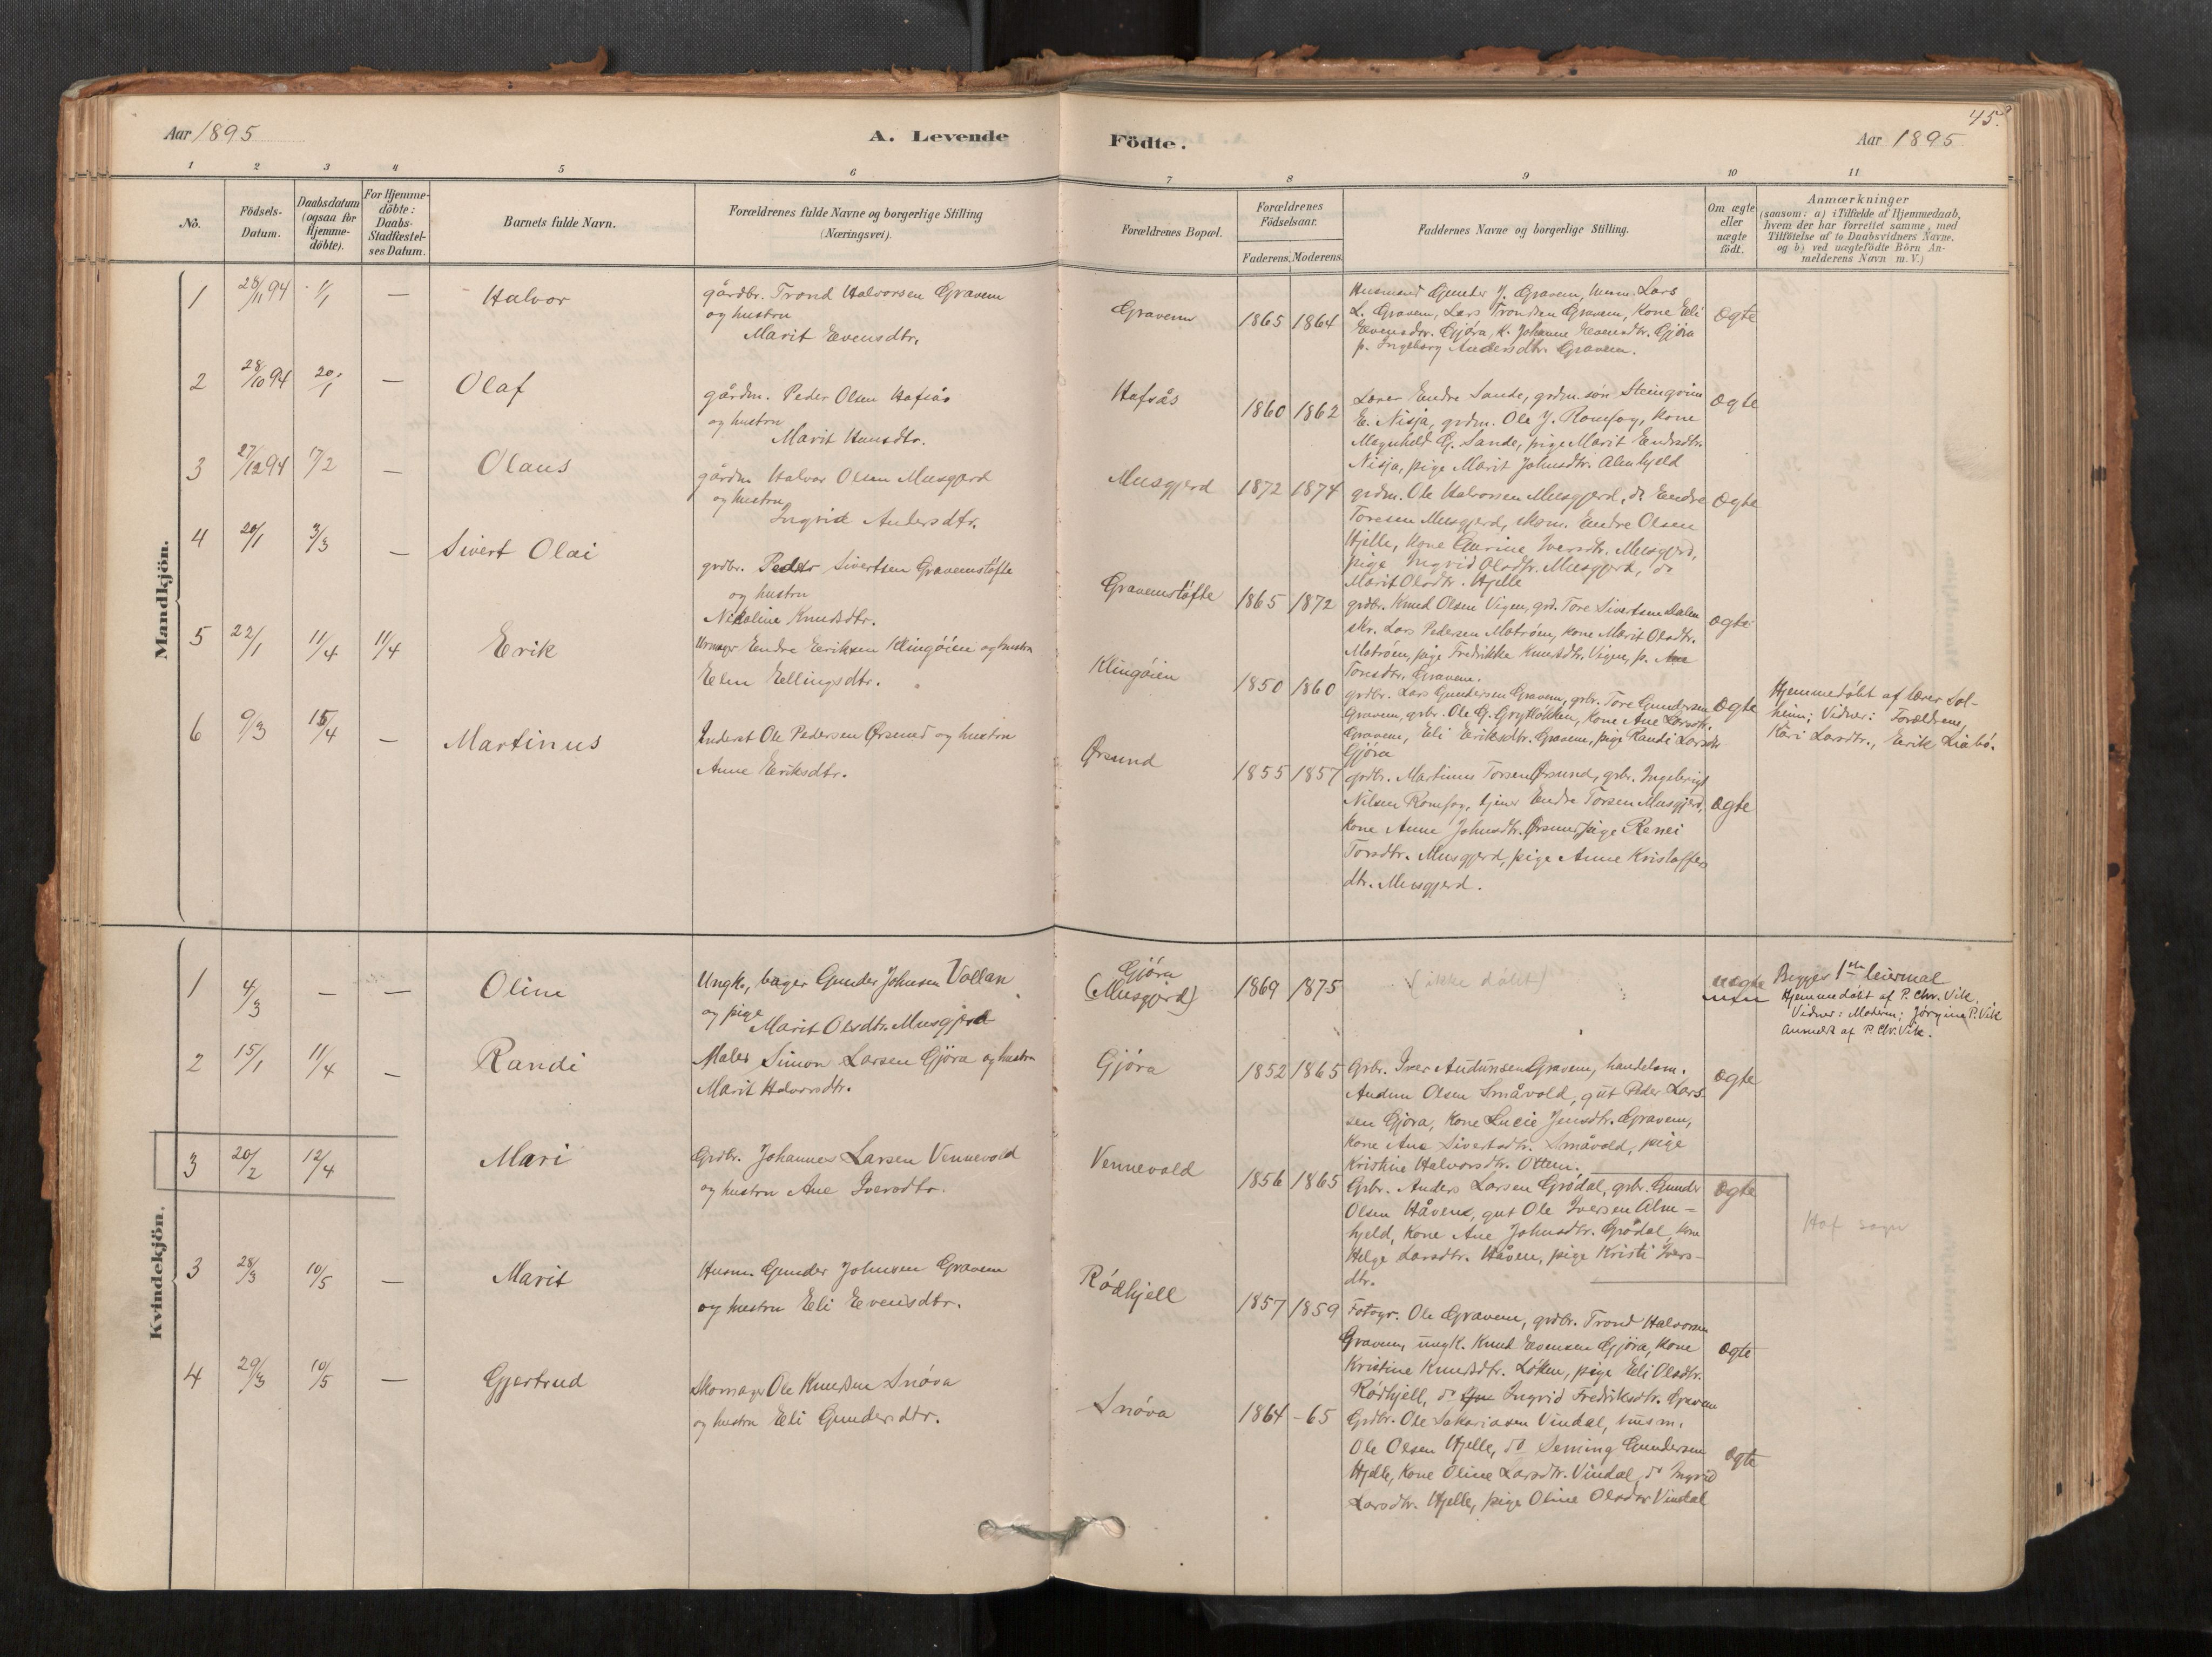 45.
Aar 1895
A. Levende
Födte.
Aar 1895
1 2 3 4 5 6 7 8 9 10 11
No.
Födsels-
Datum.
Daabsdatum
(ogsaa för
Hjemme-
döbte).
For Hjemme-
döbte:
Daabs-
Stadfestel-
ses Datum.
Barnets fulde Navn.
Forældrenes fulde Navne og borgerlige Stilling
(Næringsvei).
Forældrenes Bopæl.
Forældrenes
Födselsaar.
Faderens. Moderens.
Faddernes Navne og borgerlige Stilling.
Om ægte
eller
uægte
födt.
Anmærkninger
(saasom: a) i Tilfælde af Hjemmedaab,
hvem der har forrettet samme, med
Tilföielse af to Daabsvidners Navne.
og b) ved uægtefödte Börn An-
melderens Navn m. V.)
Mandkjön.
1 28/11 94 1/1 — Halvor
gårdbr. Trond Halvorsen Gravem
og hustru
Marit Evensdtr.
Gravem 1865 1864
Husmand Gunder J. Gravem, Lars
L. Gravem, Lars Trondsen Gravem, kone Eli
Evensdtr. Gjøra, k. Johanne Evensdtr. Gjøra
p. Ingeborg Andersdtr. Gravem.
Ægte
2 28/10 94 20/1 — Olaf
gårdm. Peder Olsen Hafsås
og hustru
Marit Hansdtr.
Hafsås 1860 1862
Lærer Endre Sande, grdm. søn Steingrim
E. Nisja, grdm. Ole J. Romfog, kone
Magnhild G. Sande, pige Marit Endresdtr.
Nisja, pige Marit Johnsdtr. Almhjeld
Ægte
3 27/12 94 17/2 — Olaus
gårdm Halvor Olsen Musgjerd
og hustru
Ingrid Andersdtr.
Musgjerd 1872 1874
grdm. Ole Halvorsen Musgjerd, do Endre
Toresen Musgjerd, skom. Endre Olsen
Hjelle, kone Gurine Iversdtr. Musgjerd,
pige Ingrid Olsdtr. Musgjerd, do
Marit Olsdtr. Hjelle
Ægte
4 20/1 3/3 — Sivert Olai
grdbr. Peder Sivertsen Gravemsløfte
og hustru
Nikoline Knudsdtr.
Gravemsløfte 1865 1872
grdbr. Knud Olsen Vigen, grd. Tore Sivertsen Dalen
skr. Lars Pedersen Motrøen, kone Marit Olsdtr.
Motrøen, pige Fredrikke Knudsdtr. Vigen, p. Ane
Toresdtr. Gravem.
Ægte
5 22/1 11/4 11/4 Erik
Urmager Endre Eriksen Klingøien og hustru
Elen Ellingsdtr.
Klingøien 1850 1860
grdbr. Lars Gundersen Gravem, grbr. Tore Gundersen
Gravem, grbr. Ole G. Grytløkken, kone Ane Larsdtr.
Gravem, Eli Eriksdtr. Gravem, pige Randi Larsdtr
Gjøra
Ægte
Hjemmedøbt af lærer Sol-
heim; Vidner: Forældrene,
Kari Larsdtr., Erik Liabø.
6 9/3 15/4 — Martinus
Inderst Ole Pedersen Ørsund og hustru
Anne Eriksdtr.
Ørsund 1855 1857
grdbr. Martinus Torsen Ørsund, grbr. Ingebrigt
Nilsen Romfog, tjener Endre Torsen Musgjerd,
kone Anne Johnsdtr. Ørsund, pige Renei
Torsdtr. Musgjerd, pige Anne Kristoffers
dtr. Musgjerd.
Ægte
Kvindekjön.
1 4/3 — — Oline
Ungk., bager Gunder Johnsen Vollan
og pige
Marit Olsdtr. Musgjerd
Gjøra
(Musgjerd) 1869 1875
(ikke døbt)
uægte
Begges 1ste leiermal
Hjemmedøbt af P. Chr. Vik.
Vidner: Moderen; Jørgine P. Vik
Anmeldt af P. Chr. Vik.
2 15/1 11/4 — Randi
Maler Simon Larsen Gjøra og hustru
Marit Halvorsdtr.
Gjøra 1852 1865
Grbr. Iver Audunsen Gravem, handelsm.
Audun Olsen Småvold, gut Peder Lars-
sen Gjøra, kone Lucie Jensdtr. Gravem,
kone Ane Sivertsdtr. Småvold, pige
Kristine Halvorsdtr. Ottem.
Ægte
3 20/2 12/4 Mari
Grdbr. Johannes Larsen Vennevold
og hustru Ane Iversdtr.
Vennevold 1856 1865
Grbr. Anders Larsen Grødal, grbr. Gunder
Olsen Håven, gut Ole Iversen Alm-
hjeld, kone Ane Johnsdtr. Grødal, kone
Helge Larsdtr. Håven, pige Kristi Ivers-
dtr.
Ægte
Hof sogn
3 28/3 10/5 — Marit
Husm. Gunder Johnsen Gravem
og hustru Eli Evensdtr.
Rödhjell 1857 1859
Fotogr. Ole Gravem, grdbr. Trond Halvorsen
Gravem, ungk. Knud Evensen Gjøra, kone
Kristine Knudsdtr. Løken, pige Eli Olsdtr.
Rödhjell, do Ingrid Fredriksdtr. Gravem
Ægte
4 29/3 10/5 — Gjertrud
Skomager Ole Knudsen Snøva
og hustru Eli Gundersdtr.
Snøva 1864 -65
Grdbr. Ole Sakariasen Vindal, husm.
Ole Olsen Hjelle, do Seming Gundersen
Hjelle, kone Oline Larsdtr. Vindal, do Ingrid
Larsdtr. Hjelle, pige Oline Olsdtr Vindal
Ægte